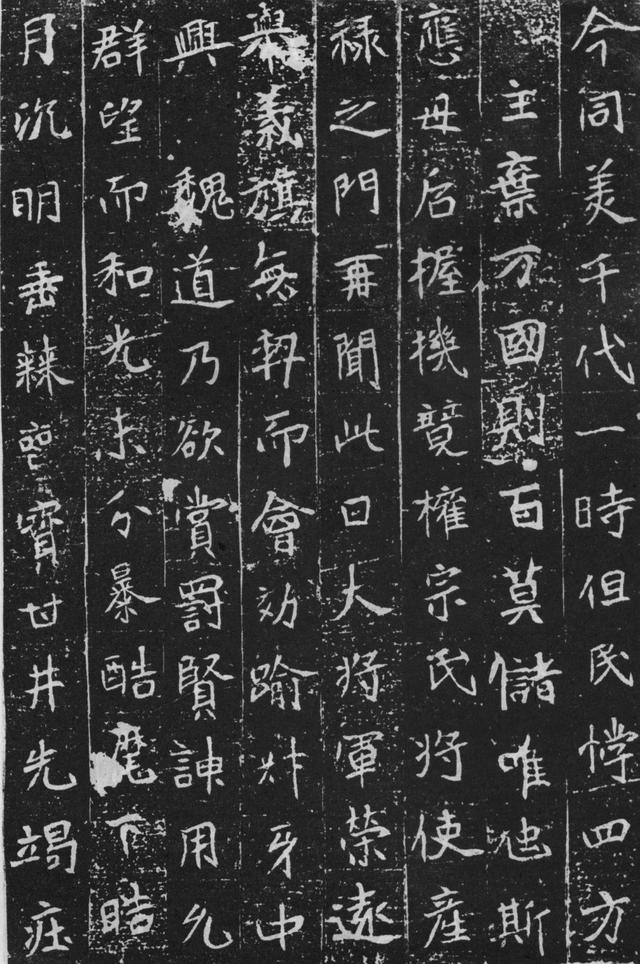 今同美千代一時但民悖四方
主棄万國則百莫儲唯虵斯
應母后握機競權宗氏將使產
禄之門再聞此日大將軍榮遠
舉義旗無而會効踰牙中
興魏道乃欲賞罰賢諫用允
群望而和光未分暴酷麾下暗
月沉明垂棘寶甘井先竭